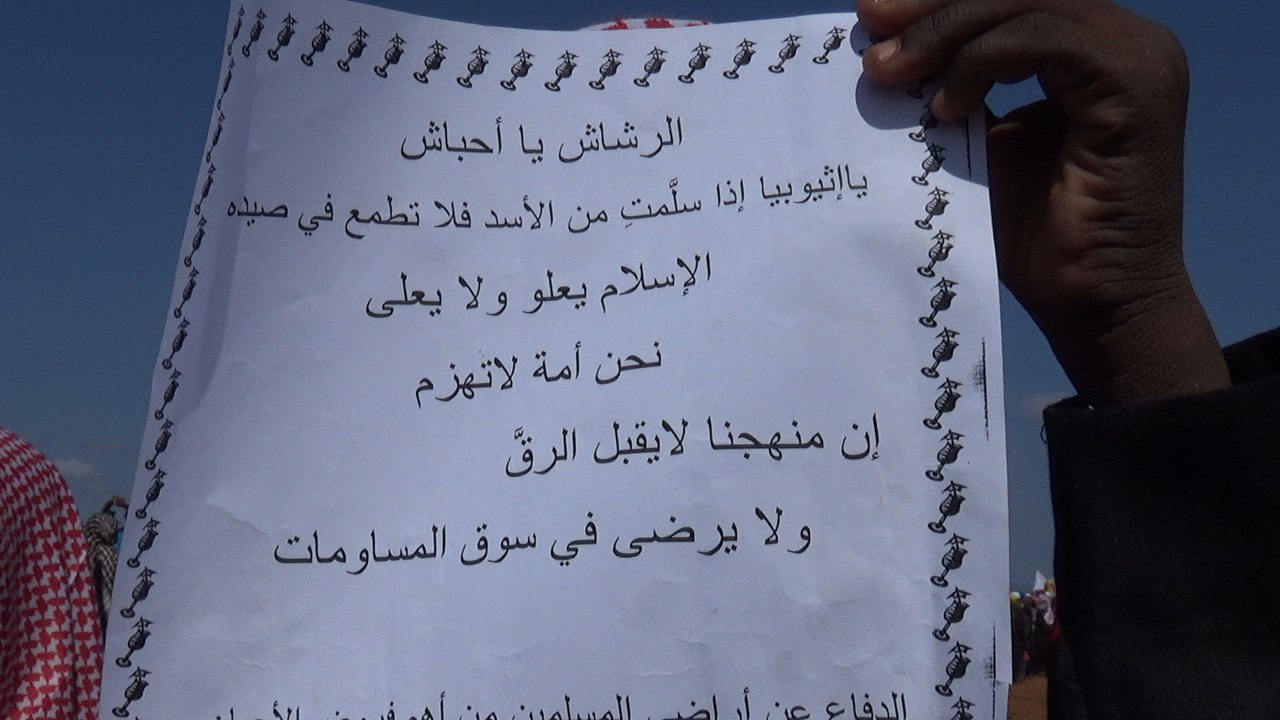 الرشاش يا أحباش
ياإثيوبيا إذا سلَّمتِ من الأسد فلا تطمع في صيده
الإسلام يعلو ولا يعلى
نحن أمة لاتهزم
إن منهجنا لايقبل الرقَّ
ولا يرضى في سوق المساومات
الدفاع عن أراضي المسلمين من أهم